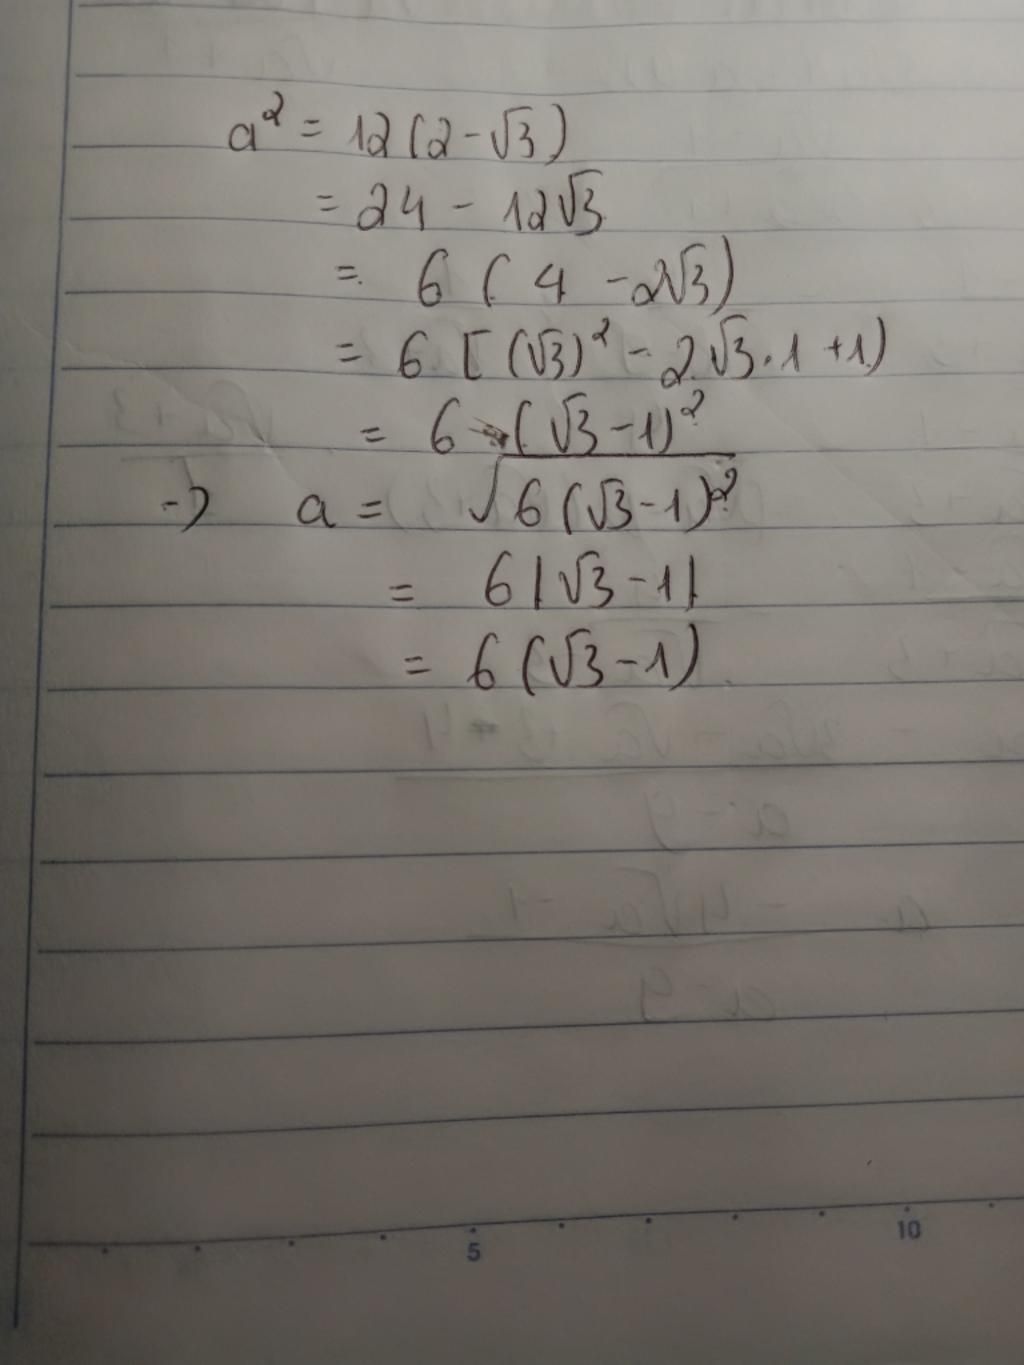 a² = 12(2-√3)
= 24 - 12√3
= 6 ( 4 - 2√3)
= 6 [ (√3)² - 2√3.1 +1)
= 6 (√3-1)²
-> a = √6(√3-1)²
= 6|√3-1|
= 6(√3-1)
5 10